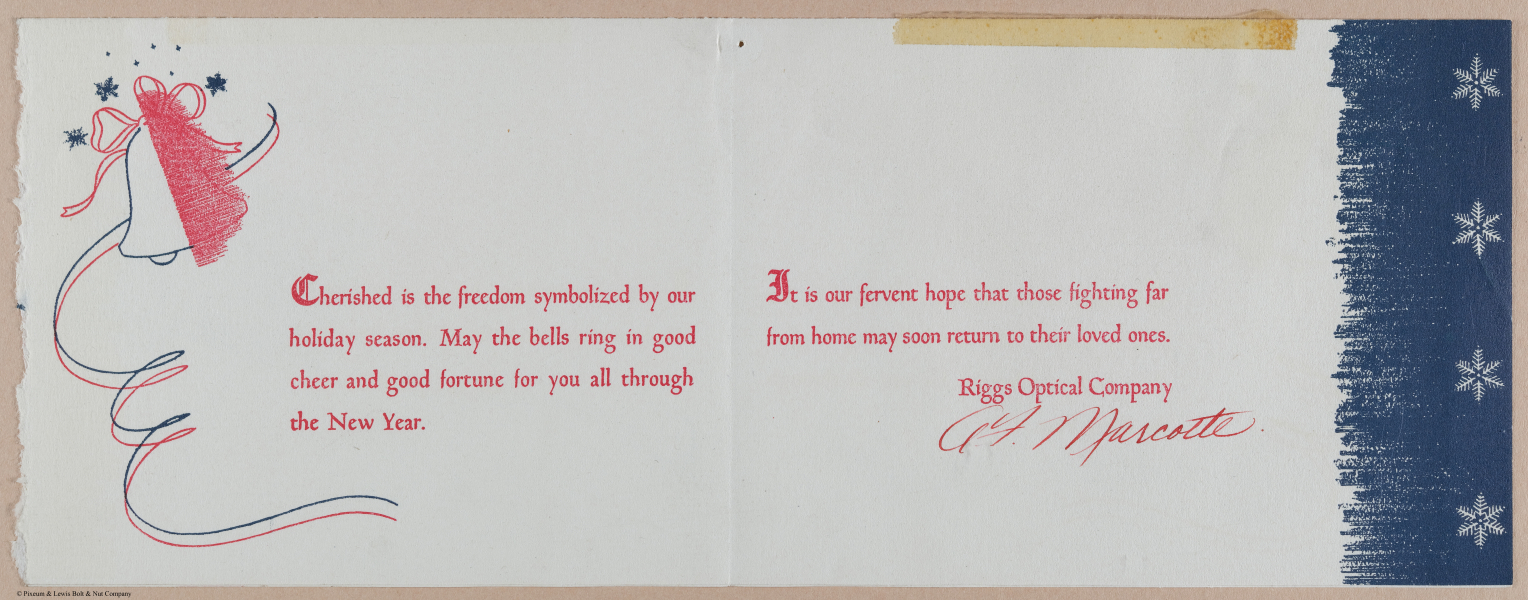 Cherished is the freedom symbolized by our
holiday season. May the bells ring in good
cheer and good fortune for you all through
the New Year.
It is our fervent hope that those fighting far
from home may soon return to their loved ones.
Riggs Optical Company
A.F. Marcotte.
© Pixeum & Lewis Bolt & Nut Company